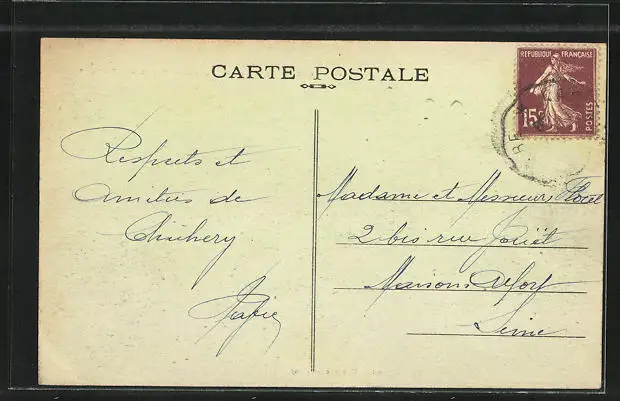 CARTE POSTALE
REPUBLIQUE FRANÇAISE
15c
POSTES
Respects et
Amitiés de
Chichery
Madame et Messieurs
2 bis rue Joliet
Maisons Alfort
Seine